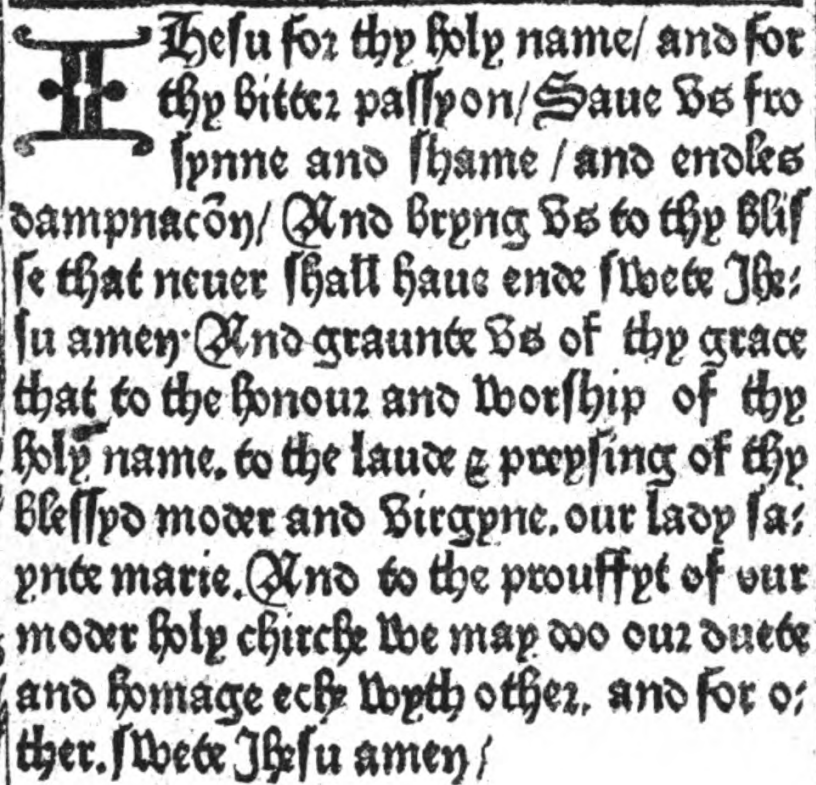 IHesu for thy holy name/ and for
thy bitter paſſyon/ Saue vs fro
ſynne and ſhame / and endles
dampnacōn/ And bryng vs to thy bliſ
ſe that neuer ſhall haue ende ſwete Jhe⸗
ſu amen· And graunte vs of thy grace
that to the honour and worſhip of thy
holy name. to the laude & preyſing of thy
bleſſyd moder and virgyne. our lady ſa⸗
ynte marie. And to the prouffyt of our
moder holy chirche we may doo our duete
and homage eche wyth other. and for o⸗
ther. ſwete Jheſu amen /